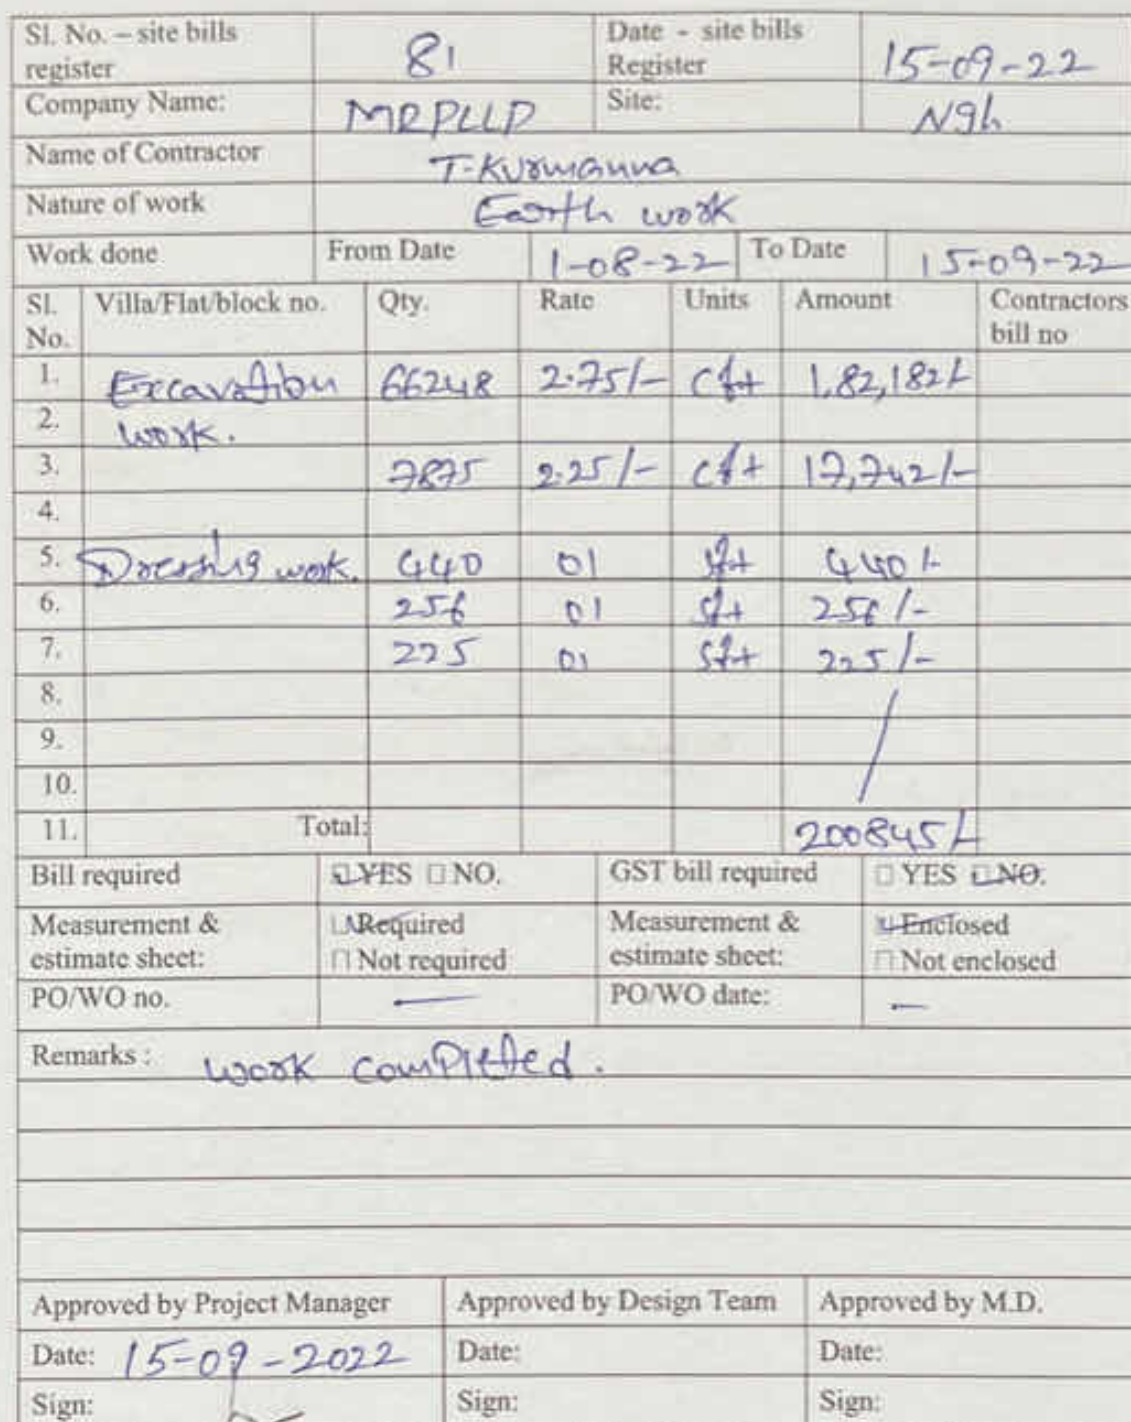 Sl. No. – site bills register 81 Date - site bills Register 15-09-22
Company Name: MRPLLP Site: Ngh
Name of Contractor T-Kurmanna
Nature of work Earth work
Work done From Date 1-08-22 To Date 15-09-22
Sl. No. Villa/Flat/block no. Qty. Rate Units Amount Contractors bill no
1. Excavation 66248 2.75/- cft 1,82,182/-
2. work.
3. 7875 2.25/- cft 17,742/-
4.
5. Dressing work. 440 01 sft 440/-
6. 256 01 sft 256/-
7. 225 01 sft 225/-
8.
9.
10.
11. Total: 200845/-
Bill required YES NO. GST bill required YES NO.
Measurement & estimate sheet: Required Measurement & estimate sheet: Enclosed
Not required Not enclosed
PO/WO no. — PO/WO date: —
Remarks : work completed.
Approved by Project Manager Approved by Design Team Approved by M.D.
Date: 15-09-2022 Date: Date:
Sign: Sign: Sign: